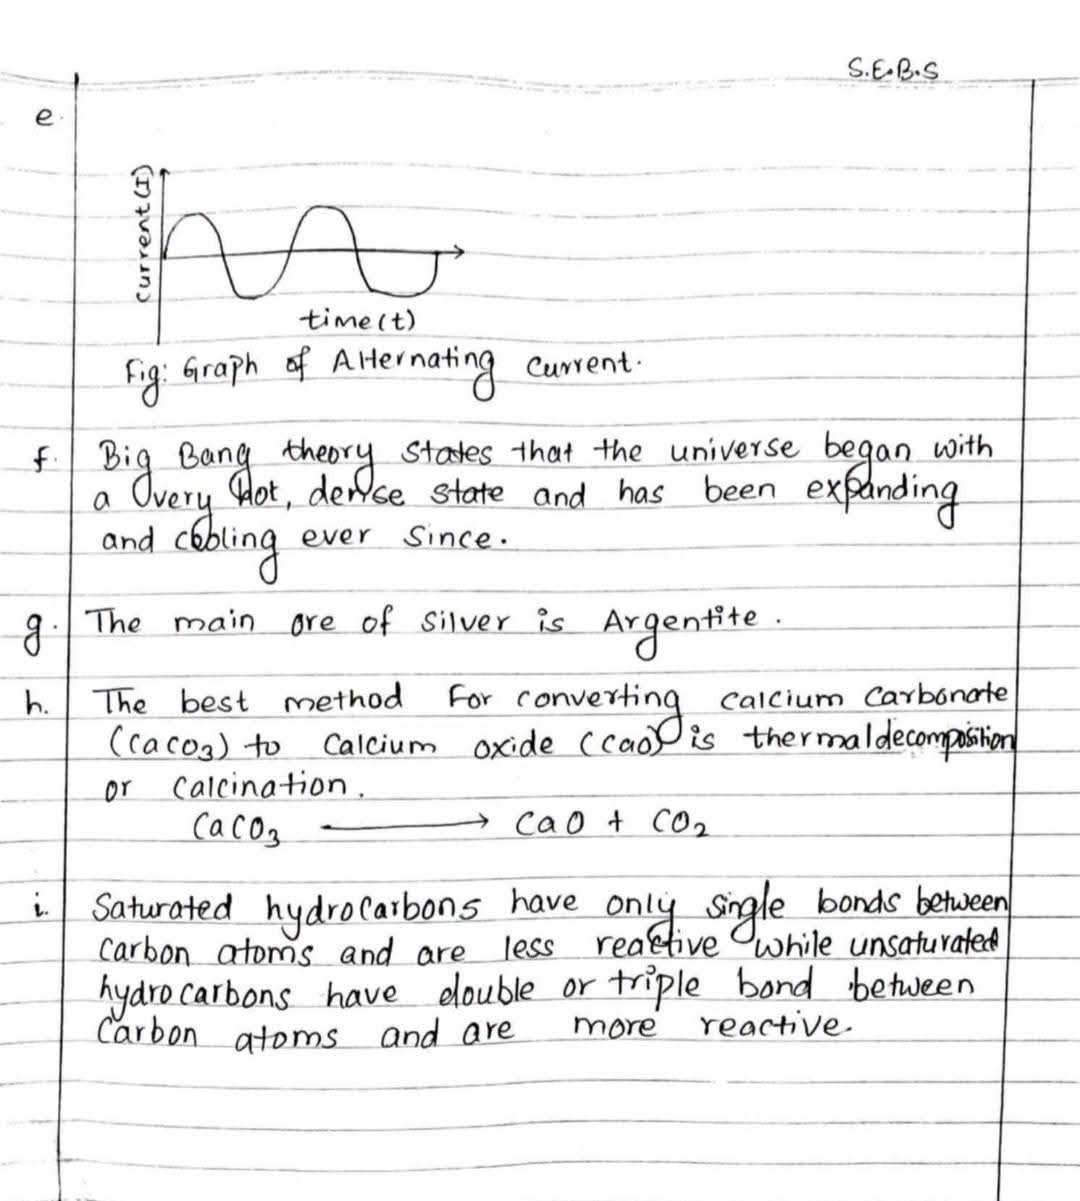 S.E.B.S
e.
current (I)
time (t)
Fig: Graph of Alternating current.
f. Big Bang theory states that the universe began with
a very hot, dense state and has been expanding
and cooling ever since.
g. The main ore of silver is Argentite.
h. The best method For converting calcium carbonate
(CaCO3) to calcium oxide (CaO) is thermal decomposition
or calcination.
CaCO3 → CaO + CO2
i. Saturated hydrocarbons have only single bonds between
carbon atoms and are less reactive while unsaturated
hydrocarbons have double or triple bond between
carbon atoms and are more reactive.